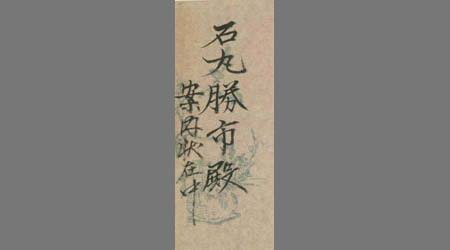 石丸勝市殿
案内状在中